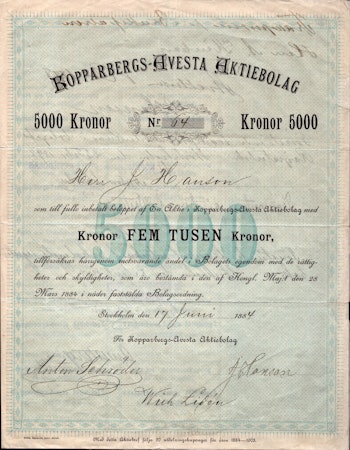 KOPPARBERGS-AVESTA AKTIEBOLAG
5000 Kronor Nr 64 Kronor 5000
Herr J. Hanson
som till fullo inbetalt beloppet af En Aktie i Kopparbergs-Avesta Aktiebolag med
5000
Kronor FEM TUSEN Kronor,
tillförsäkras härigenom motsvarande andel i Bolagets egendom med de rättig-
heter och skyldigheter, som äro bestämda i den af Kongl. Maj:t den 28
Mars 1884 i nåder fastställda Bolagsordning.
Stockholm den 17 Juni 1884
För Kopparbergs-Avesta Aktiebolag
Anton Schröder J Hanson
Wilh Lidén
Med detta Aktiebref följa 20 utdelningskuponger för åren 1884-1903.